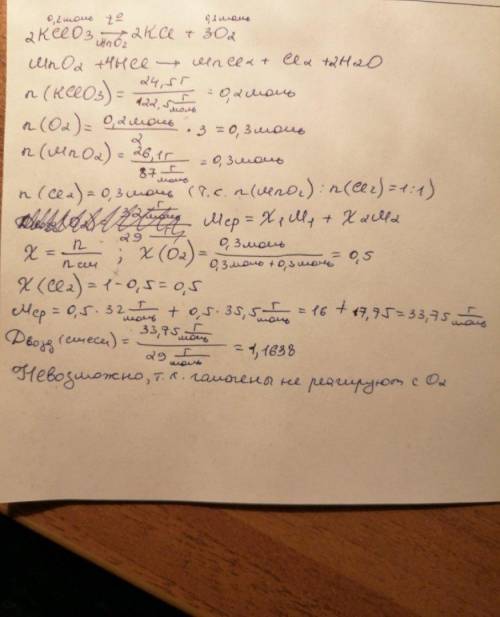 0,2моль t° 0,3моль
2KClO3 ⟶ 2KCl + 3O2
MnO2
MnO2 + 4HCl ⟶ MnCl2 + Cl2 + 2H2O
n(KClO3) = 24,5г / 122,5 г/моль = 0,2моль
n(O2) = 0,2моль / 2 · 3 = 0,3моль
n(MnO2) = 26,1г / 87 г/моль = 0,3моль
n(Cl2) = 0,3моль (т.к. n(MnO2) : n(Cl2) = 1:1)
Mср = X1M1 + X2M2
X = n / nсм ; X(O2) = 0,3моль / 0,3моль + 0,3моль = 0,5
X(Cl2) = 1 - 0,5 = 0,5
Mср = 0,5 · 32 г/моль + 0,5 · 35,5 г/моль = 16 + 17,75 = 33,75 г/моль
Dвозд(смеси) = 33,75 г/моль / 29 г/моль = 1,1638
Невозможно, т.к. галогены не реагируют с O2